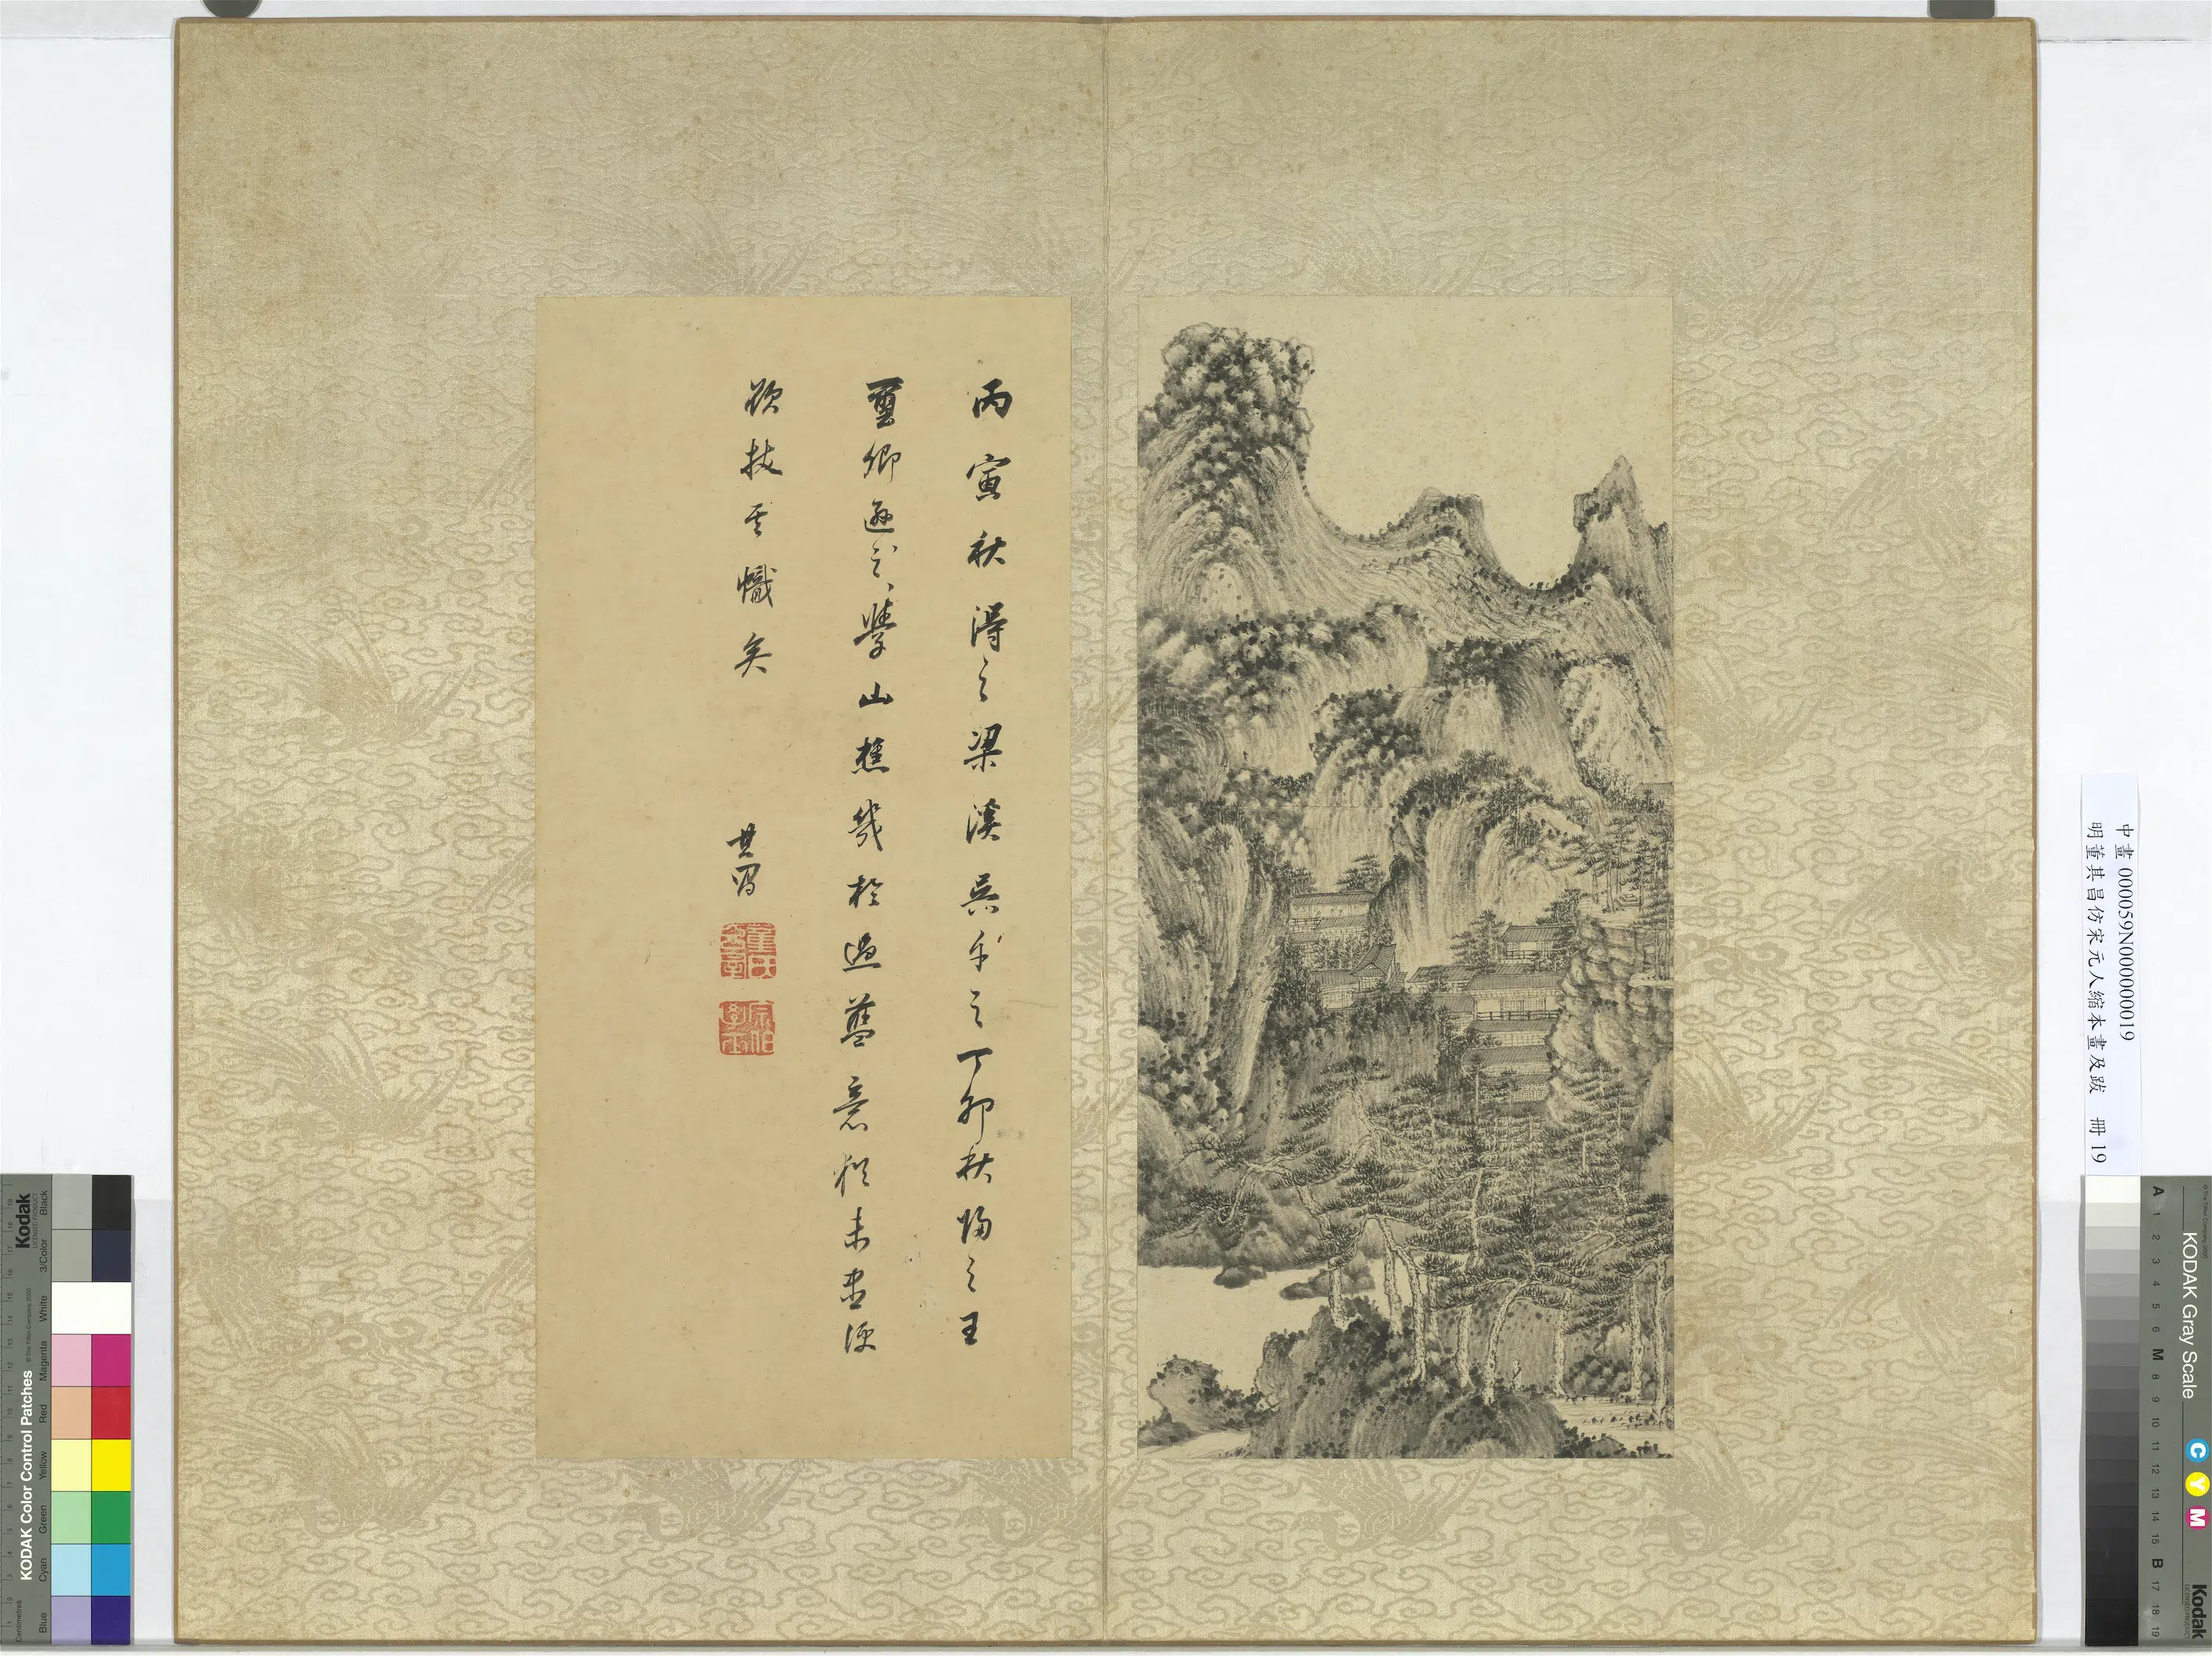 丙寅秋得之梁溪吳平之丁卯秋歸之王
璽卿遜之學山樵幾於過藍意猶未盡便
欲拔其幟矣
其昌
董氏玄宰
宗伯學士
中畫000059N000000019
明董其昌仿宋元人縮本畫及跋 冊19
Kodak
KODAK Color Control Patches
Blue Cyan Green Yellow Red Magenta White 3/Color Black
Centimetres
KODAK Gray Scale
C Y M
Kodak
A 1 2 3 4 5 6 M 8 9 10 11 12 13 14 15 B 17 18 19